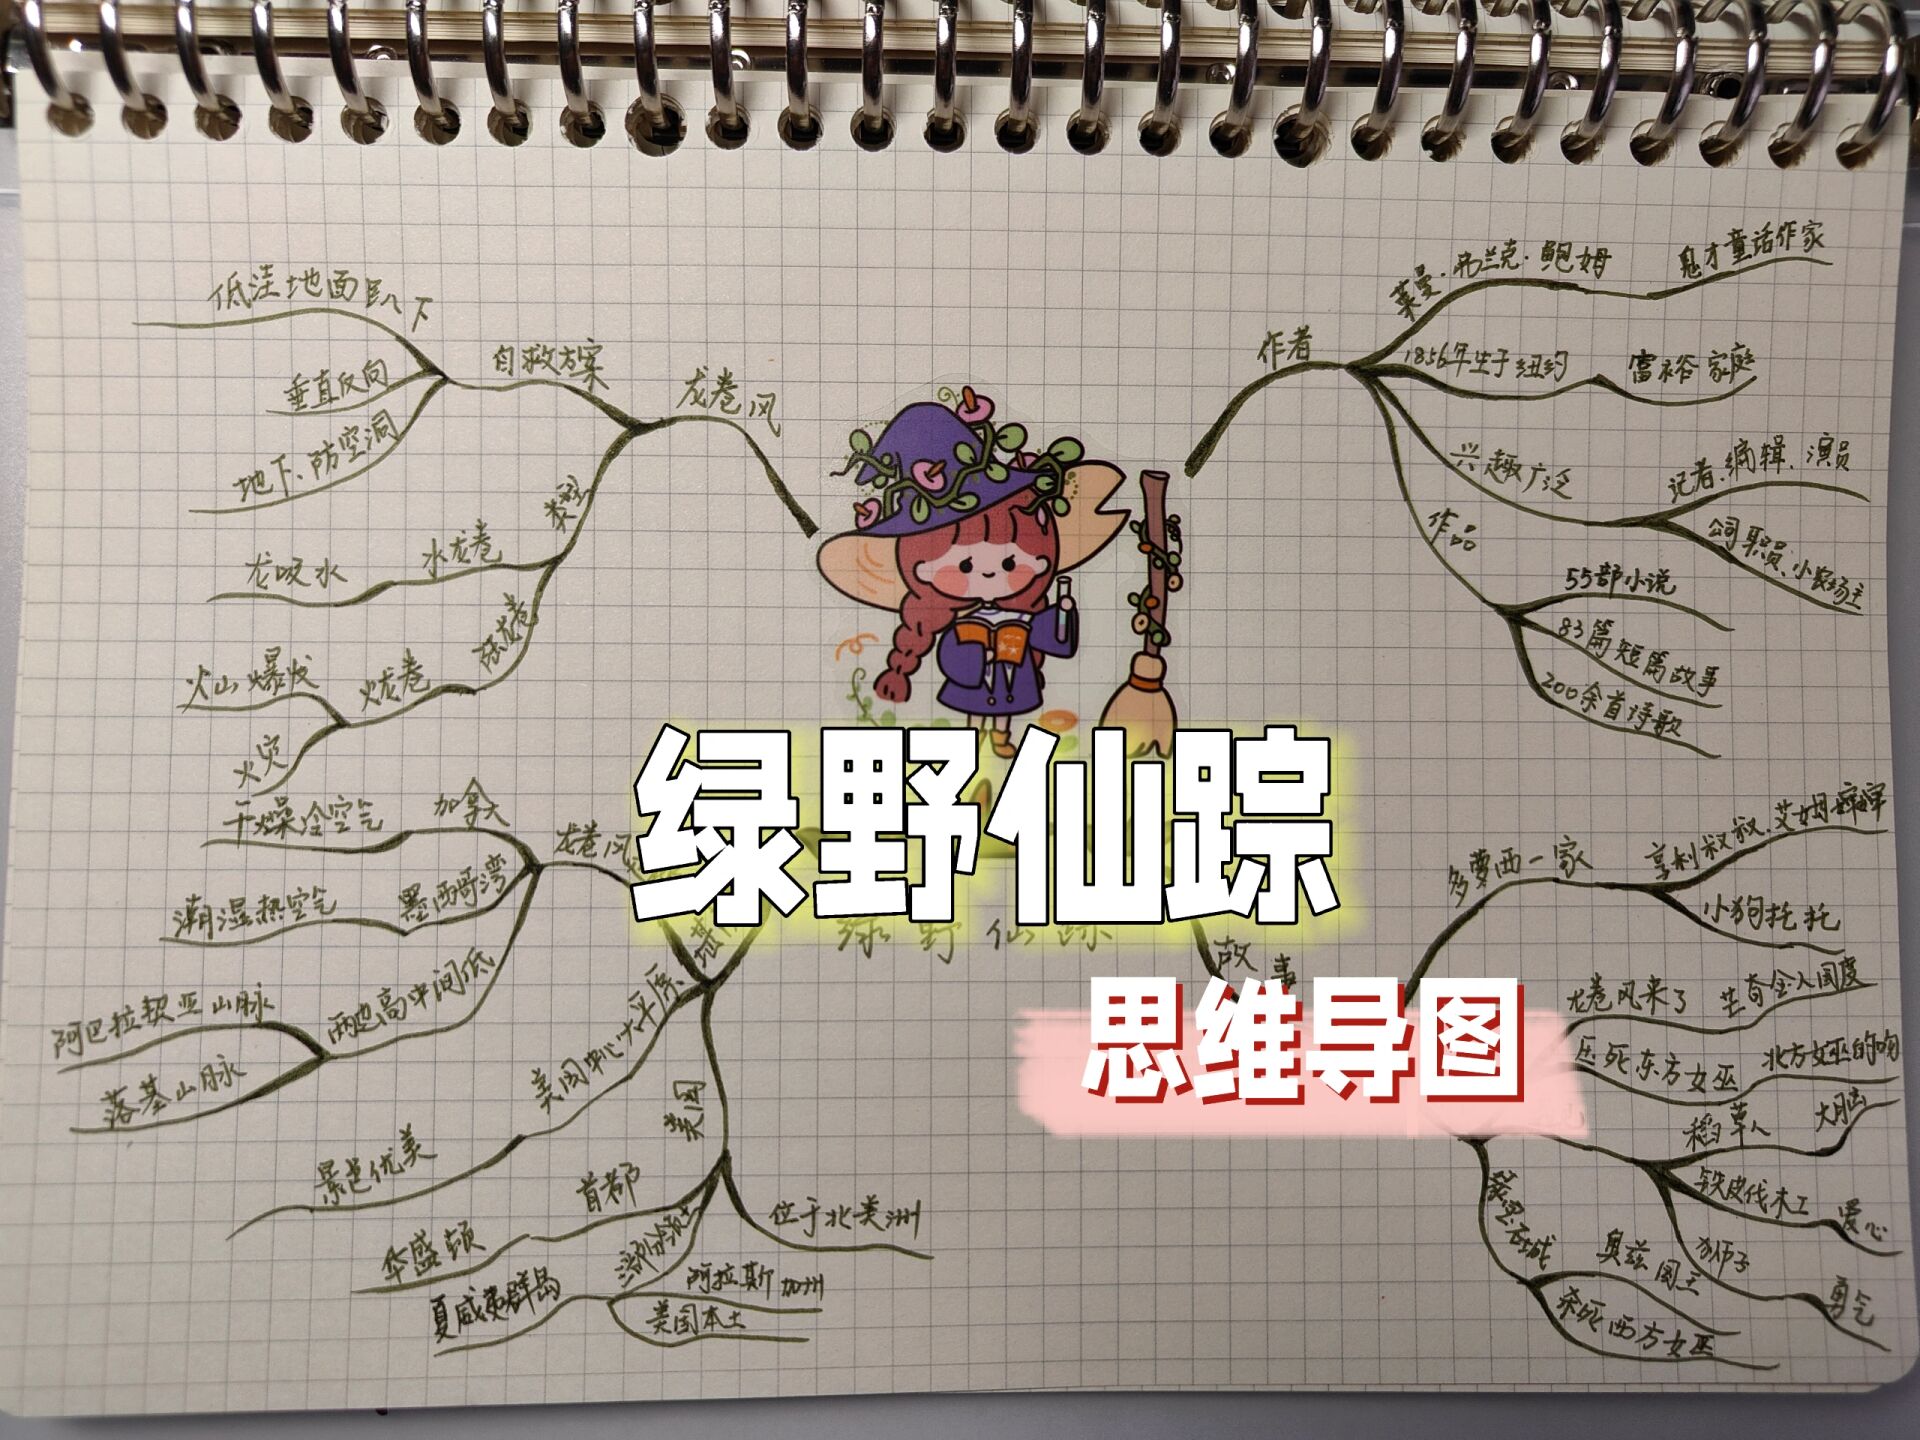 低洼地面趴下
垂直反向
地下、防空洞
自救方案
龙卷风
类型
水龙卷
龙吸水
陆龙卷
火龙卷
火山爆发
火灾
作者
莱曼·弗兰克·鲍姆
鬼才童话作家
1856年生于纽约
富裕家庭
兴趣广泛
记者、编辑、演员
公司职员、小农场主
作品
55部小说
83篇短篇故事
200余首诗歌
绿野仙踪
绿野仙踪
思维导图
龙卷风
加拿大
干燥冷空气
墨西哥湾
潮湿热空气
两边高中间低
阿巴拉契亚山脉
落基山脉
美国中心大平原
景色优美
美国
首都
华盛顿
三部分领土
夏威夷群岛
阿拉斯加州
美国本土
位于北美洲
故事
多萝西一家
亨利叔叔、艾姆婶婶
小狗托托
龙卷风来了
芒奇金人国度
压死东方女巫
北方女巫的吻
稻草人
大脑
铁皮伐木工
爱心
狮子
勇气
翡翠石城
奥兹国王
杀死西方女巫